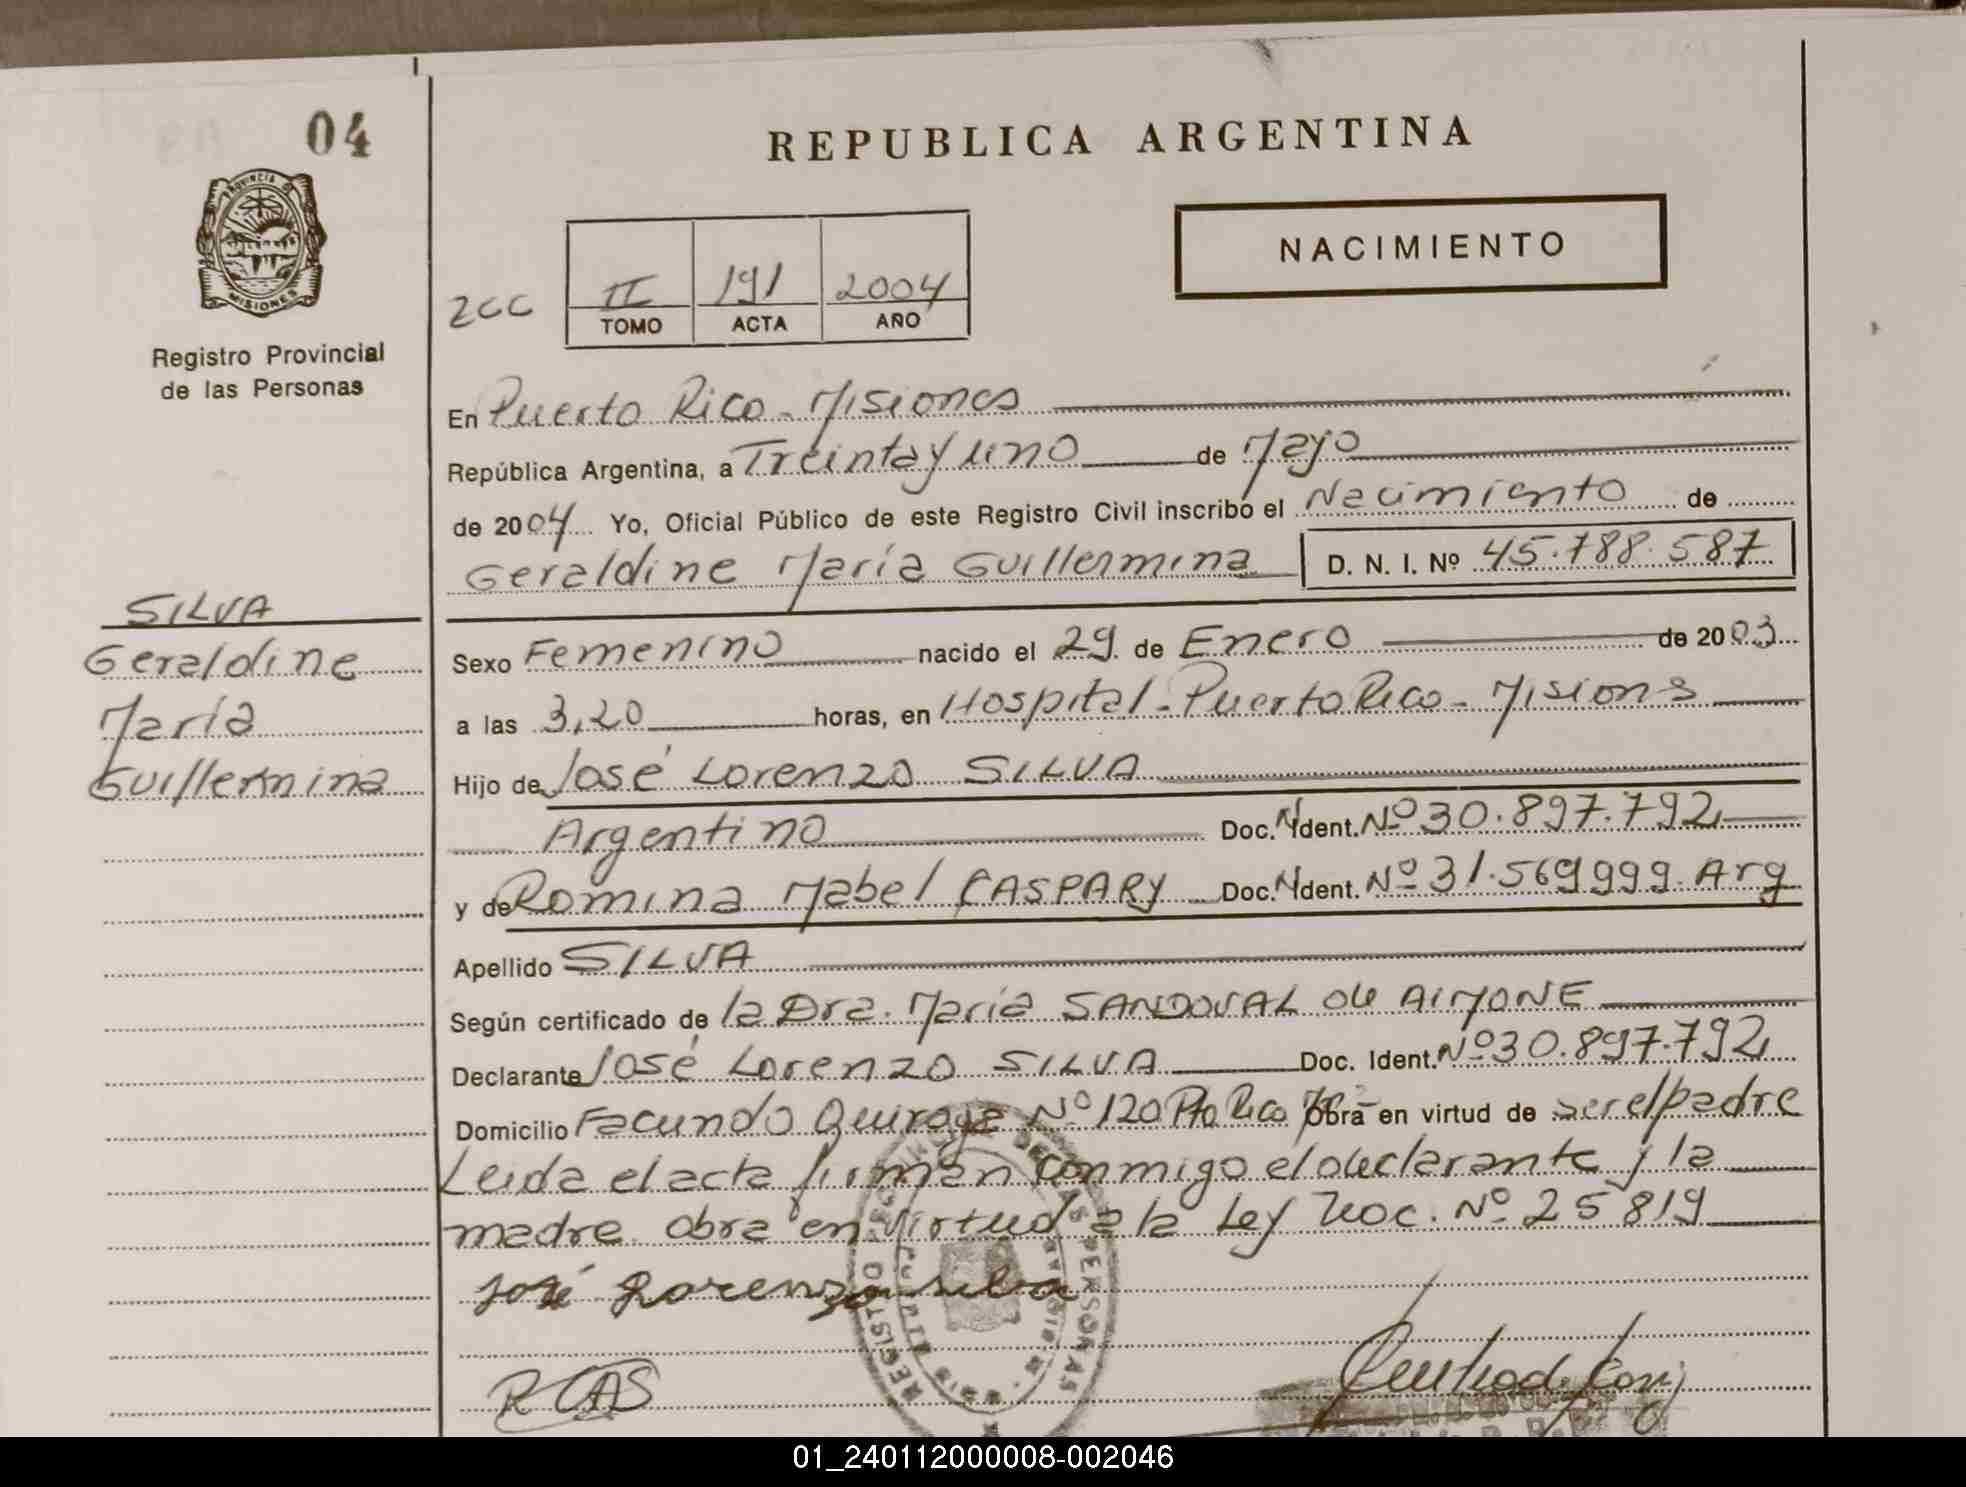 04
REPUBLICA ARGENTINA
PROVINCIA D
MISIONES
Registro Provincial
de las Personas
NACIMIENTO
2CC
II 191 2004
TOMO ACTA AÑO
En Puerto Rico - Misiones
República Argentina, a Treinta y uno de Mayo
de 2004 Yo, Oficial Público de este Registro Civil inscribo el Nacimiento de
Geraldine María Guillermina D. N. I. Nº 45.788.587
SILVA
Geraldine
María
Guillermina
Sexo Femenino nacido el 29 de Enero de 2003
a las 3,20 horas, en Hospital - Puerto Rico - Misions
Hijo de José Lorenzo SILVA
Argentino Doc. Ident. Nº 30.897.792
y de Romina Mabel CASPARY Doc. Ident. Nº 31.569999. Arg
Apellido SILVA
Según certificado de la Dra. María SANDOVAL de AIMONE
Declarante José Lorenzo SILVA Doc. Ident. Nº 30.897.792
Domicilio Facundo Quiroga Nº 120 Pto Rico Obra en virtud de ser el padre
Leida el acta firman conmigo el declarante y la
madre. obra en virtud a la Ley Nºc. Nº 25819
José Lorenzo silva
REGISTRO PERSONAS
RCAS
01_240112000008-002046